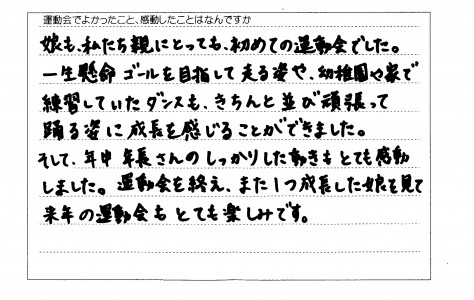 運動会でよかったこと、感動したことはなんですか
娘も、私たち親にとっても、初めての運動会でした。
一生懸命ゴールを目指して走る姿や、幼稚園や家で
練習していたダンスも、きちんと並び頑張って
踊る姿に成長を感じることができました。
そして、年中年長さんのしっかりした動きもとても感動
しました。運動会を終え、また1つ成長した娘を見て
来年の運動会もとても楽しみです。